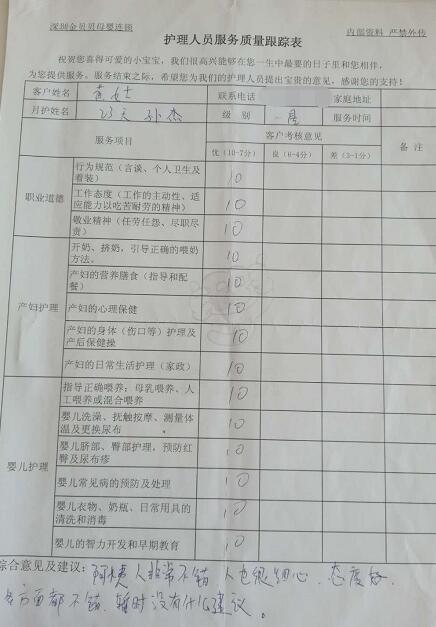 深圳金贝贝母婴连锁 内部资料 严禁外传
护理人员服务质量跟踪表
祝贺您喜得可爱的小宝宝，我们很高兴能够在您一生中最要的日子里和您相伴，
为您提供服务。服务结束之际，希望您为我们的护理人员提出宝贵的意见，感谢您的支持！
客户姓名 黄女士 联系电话 家庭地址
月护姓名 孙杰 级 别 一星 服务时间
服务项目 客户考核意见 备 注
优（10-7分） 良（6-4分） 差（3-1分）
职业道德
行为规范（言谈、个人卫生及
着装） 10
工作态度（工作的主动性、适
应能力以吃苦耐劳的精神） 10
敬业精神（任劳任怨、尽职尽
责） 10
产妇护理
开奶、挤奶，引导正确的喂奶
方法。 10
产妇的营养膳食（指导和配
餐） 10
产妇的心理保健 10
产妇的身体（伤口等）护理及
产后保健操 10
产妇的日常生活护理（家政） 10
婴儿护理
指导正确喂养：母乳喂养、人
工喂养或混合喂养 10
婴儿洗澡、抚触按摩、测量体
温及更换尿布 10
婴儿脐部、臀部护理，预防红
臀及尿布疹 10
婴儿常见病的预防及处理 10
婴儿衣物、奶瓶、日常用具的
清洗和消毒 10
婴儿的智力开发和早期教育 10
综合意见及建议：阿姨人非常不错 人也很细心、态度好、
各方面都不错、暂时没有什么建议。